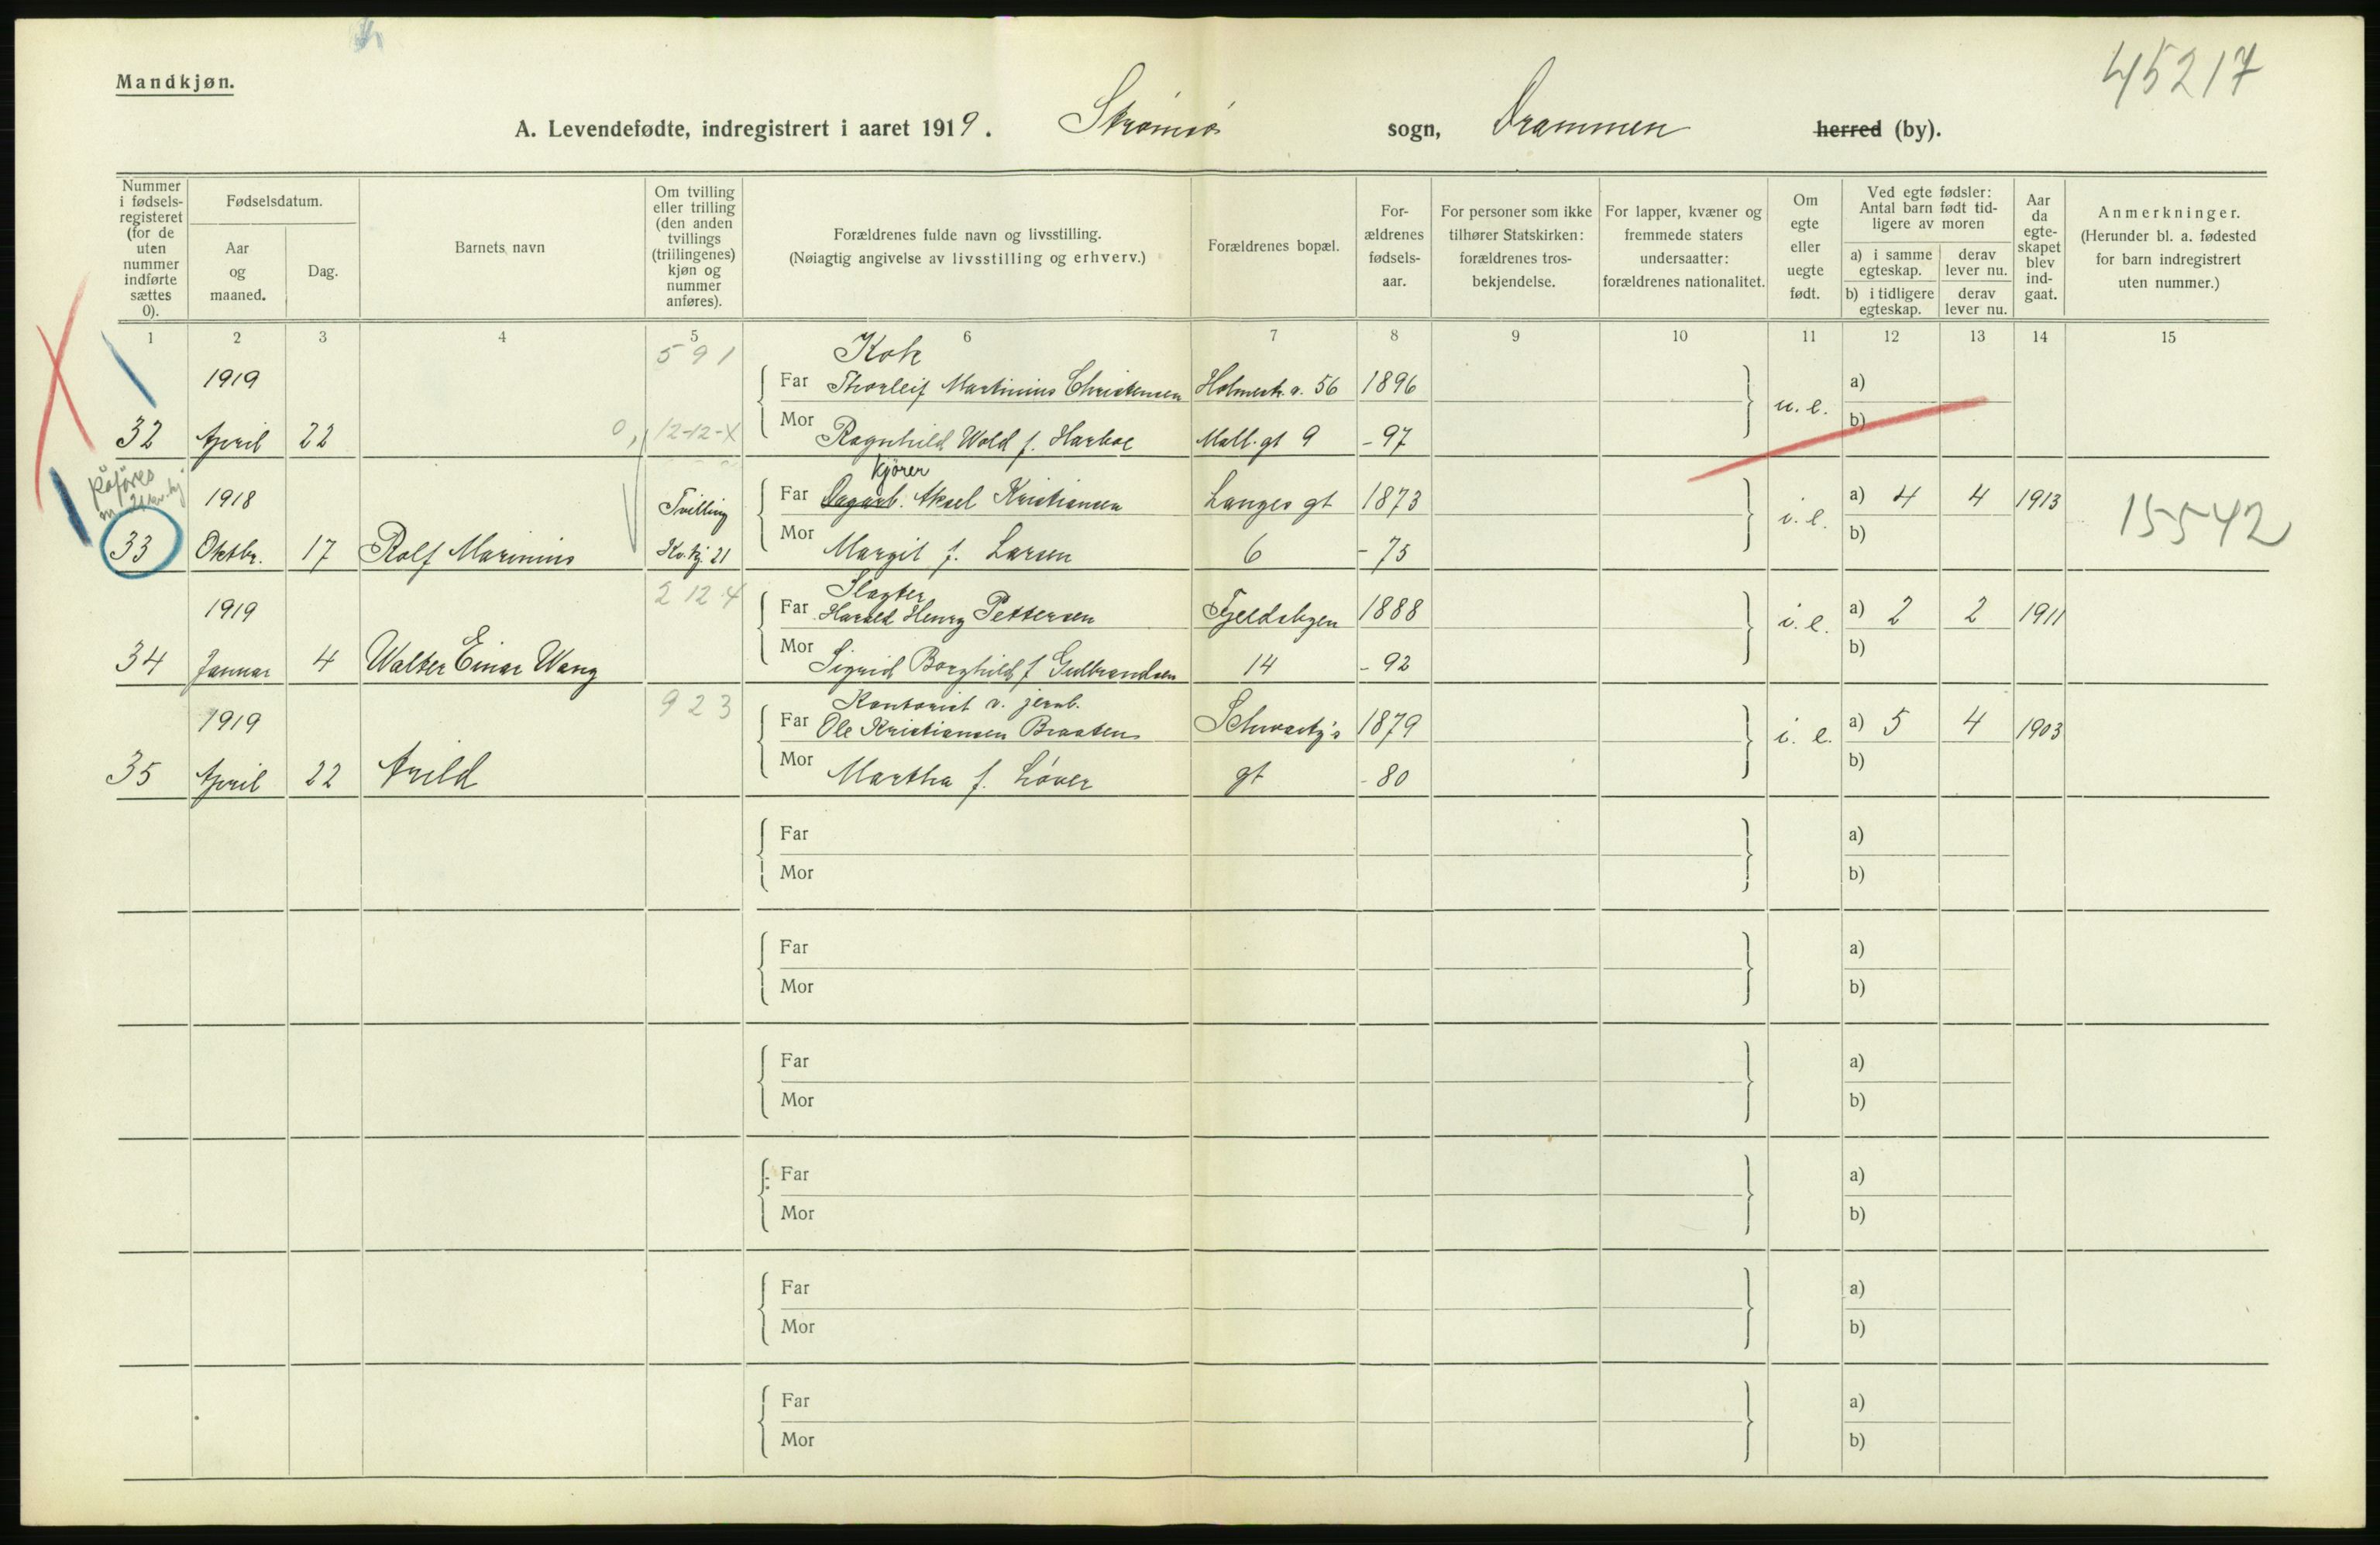 45217
Mandkjøn.
A. Levendefødte, indregistrert i aaret 1919. Strømsø sogn, Drammen herred (by).
Nummer i fødsels-registeret (for de uten nummer indførte sættes 0).
Fødselsdatum.
Aar og maaned.
Dag.
Barnets navn
Om tvilling eller trilling (den anden tvillings (trillingenes) kjøn og nummer anføres).
Forældrenes fulde navn og livsstilling.
(Nøiagtig angivelse av livsstilling og erhverv.)
Forældrenes bopæl.
For-ældrenes fødsels-aar.
For personer som ikke tilhører Statskirken: forældrenes tros-bekjendelse.
For lapper, kvæner og fremmede staters undersaatter: forældrenes nationalitet.
Om egte eller uegte født.
Ved egte fødsler: Antal barn født tid-ligere av moren
a) i samme egteskap.
derav lever nu.
b) i tidligere egteskap.
derav lever nu.
Aar da egte-skapet blev ind-gaat.
Anmerkninger.
(Herunder bl. a. fødested for barn indregistrert uten nummer.)
1 2 3 4 5 6 7 8 9 10 11 12 13 14 15
591 Kok
1919 Far Thorleif Martinius Christensen Holmestr. v. 56 1896 a)
32 April 22 0, 12-12-X Mor Ragnhild Wold f. Harboe Mall. gt 9 -97 u.e. b)
påføres
Kjører
1918 Tvilling Far Dagarb. Aksel Kristiansen Langes gt 1873 i.e. a) 4 4 1913 15542
33 Oktbr. 17 Rolf Marinius Kv.kj. 21 Mor Margit f. Larsen 6 -75 b)
2 12 4 Slagter
1919 Far Harald Henry Pettersen Fjeldsbyen 1888 i.e. a) 2 2 1911
34 Januar 4 Walter Einar Wang Mor Sigrid Borghild f Gulbrandsen 14 -92 b)
923 Kontorist v. jernb.
1919 Far Ole Kristiansen Braaten Schwartz's 1879 i.e. a) 5 4 1903
35 April 22 Arild Mor Martha f. Løver gt -80 b)
Far a)
Mor b)
Far a)
Mor b)
Far a)
Mor b)
Far a)
Mor b)
Far a)
Mor b)
Far a)
Mor b)